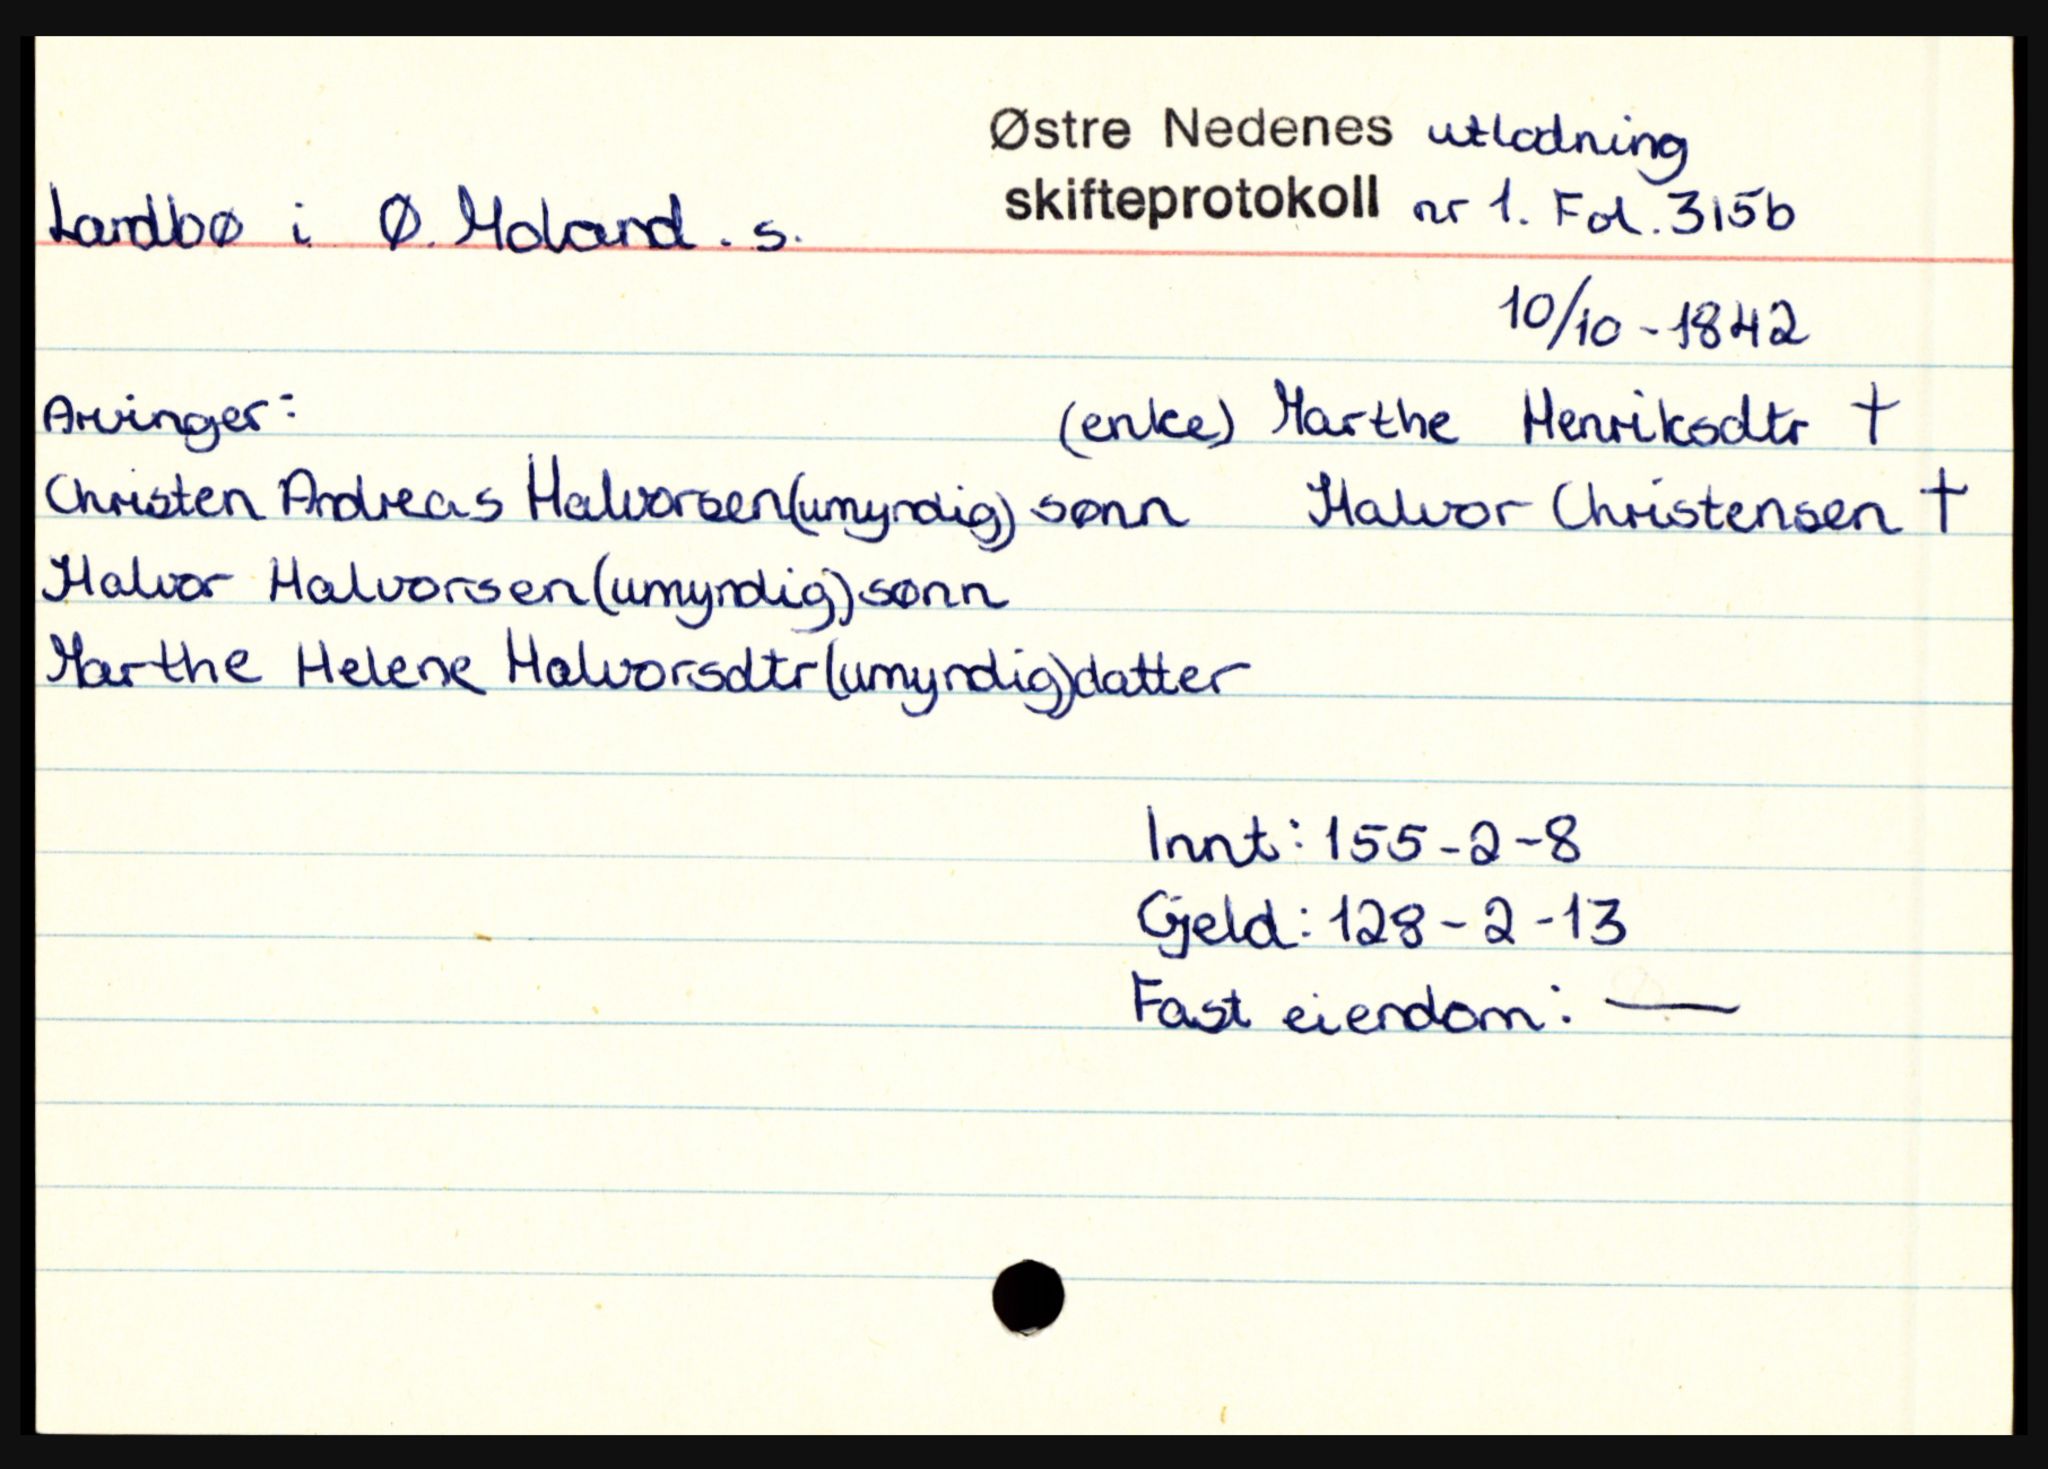 Østre Nedenes utlodning
Landbø i Ø. Moland. s. skifteprotokoll nr 1. Fol. 315b
10/10 - 1842
Arvinger: (enke) Marthe Henriksdtr †
Christen Andreas Halvorsen (umyndig) sønn Halvor Christensen †
Halvor Halvorsen (umyndig) sønn
Marthe Helene Halvorsdtr (umyndig) datter
Innt: 155 - 2 - 8
Gjeld: 128 - 2 - 13
Fast eiendom: —